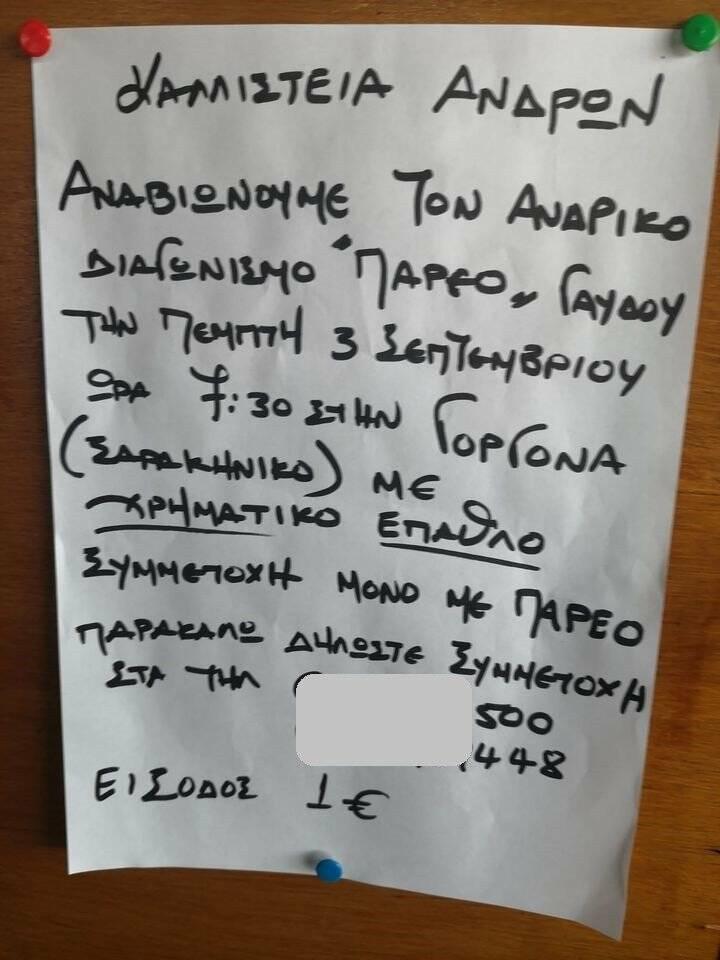 ΚΑΛΛΙΣΤΕΙΑ ΑΝΔΡΩΝ
ΑΝΑΒΙΩΝΟΥΜΕ ΤΟΝ ΑΝΔΡΙΚΟ
ΔΙΑΓΩΝΙΣΜΟ "ΠΑΡΕΟ" ΓΑΥΔΟΥ
ΤΗΝ ΠΕΜΠΤΗ 3 ΣΕΠΤΕΜΒΡΙΟΥ
ΩΡΑ 7:30 ΣΤΗΝ ΓΟΡΓΟΝΑ
(ΣΑΡΑΚΗΝΙΚΟ) ΜΕ
ΧΡΗΜΑΤΙΚΟ ΕΠΑΘΛΟ
ΣΥΜΜΕΤΟΧΗ ΜΟΝΟ ΜΕ ΠΑΡΕΟ
ΠΑΡΑΚΑΛΩ ΔΗΛΩΣΤΕ ΣΥΜΜΕΤΟΧΗ
ΣΤΑ ΤΗΛ 500
448
ΕΙΣΟΔΟΣ 1 €